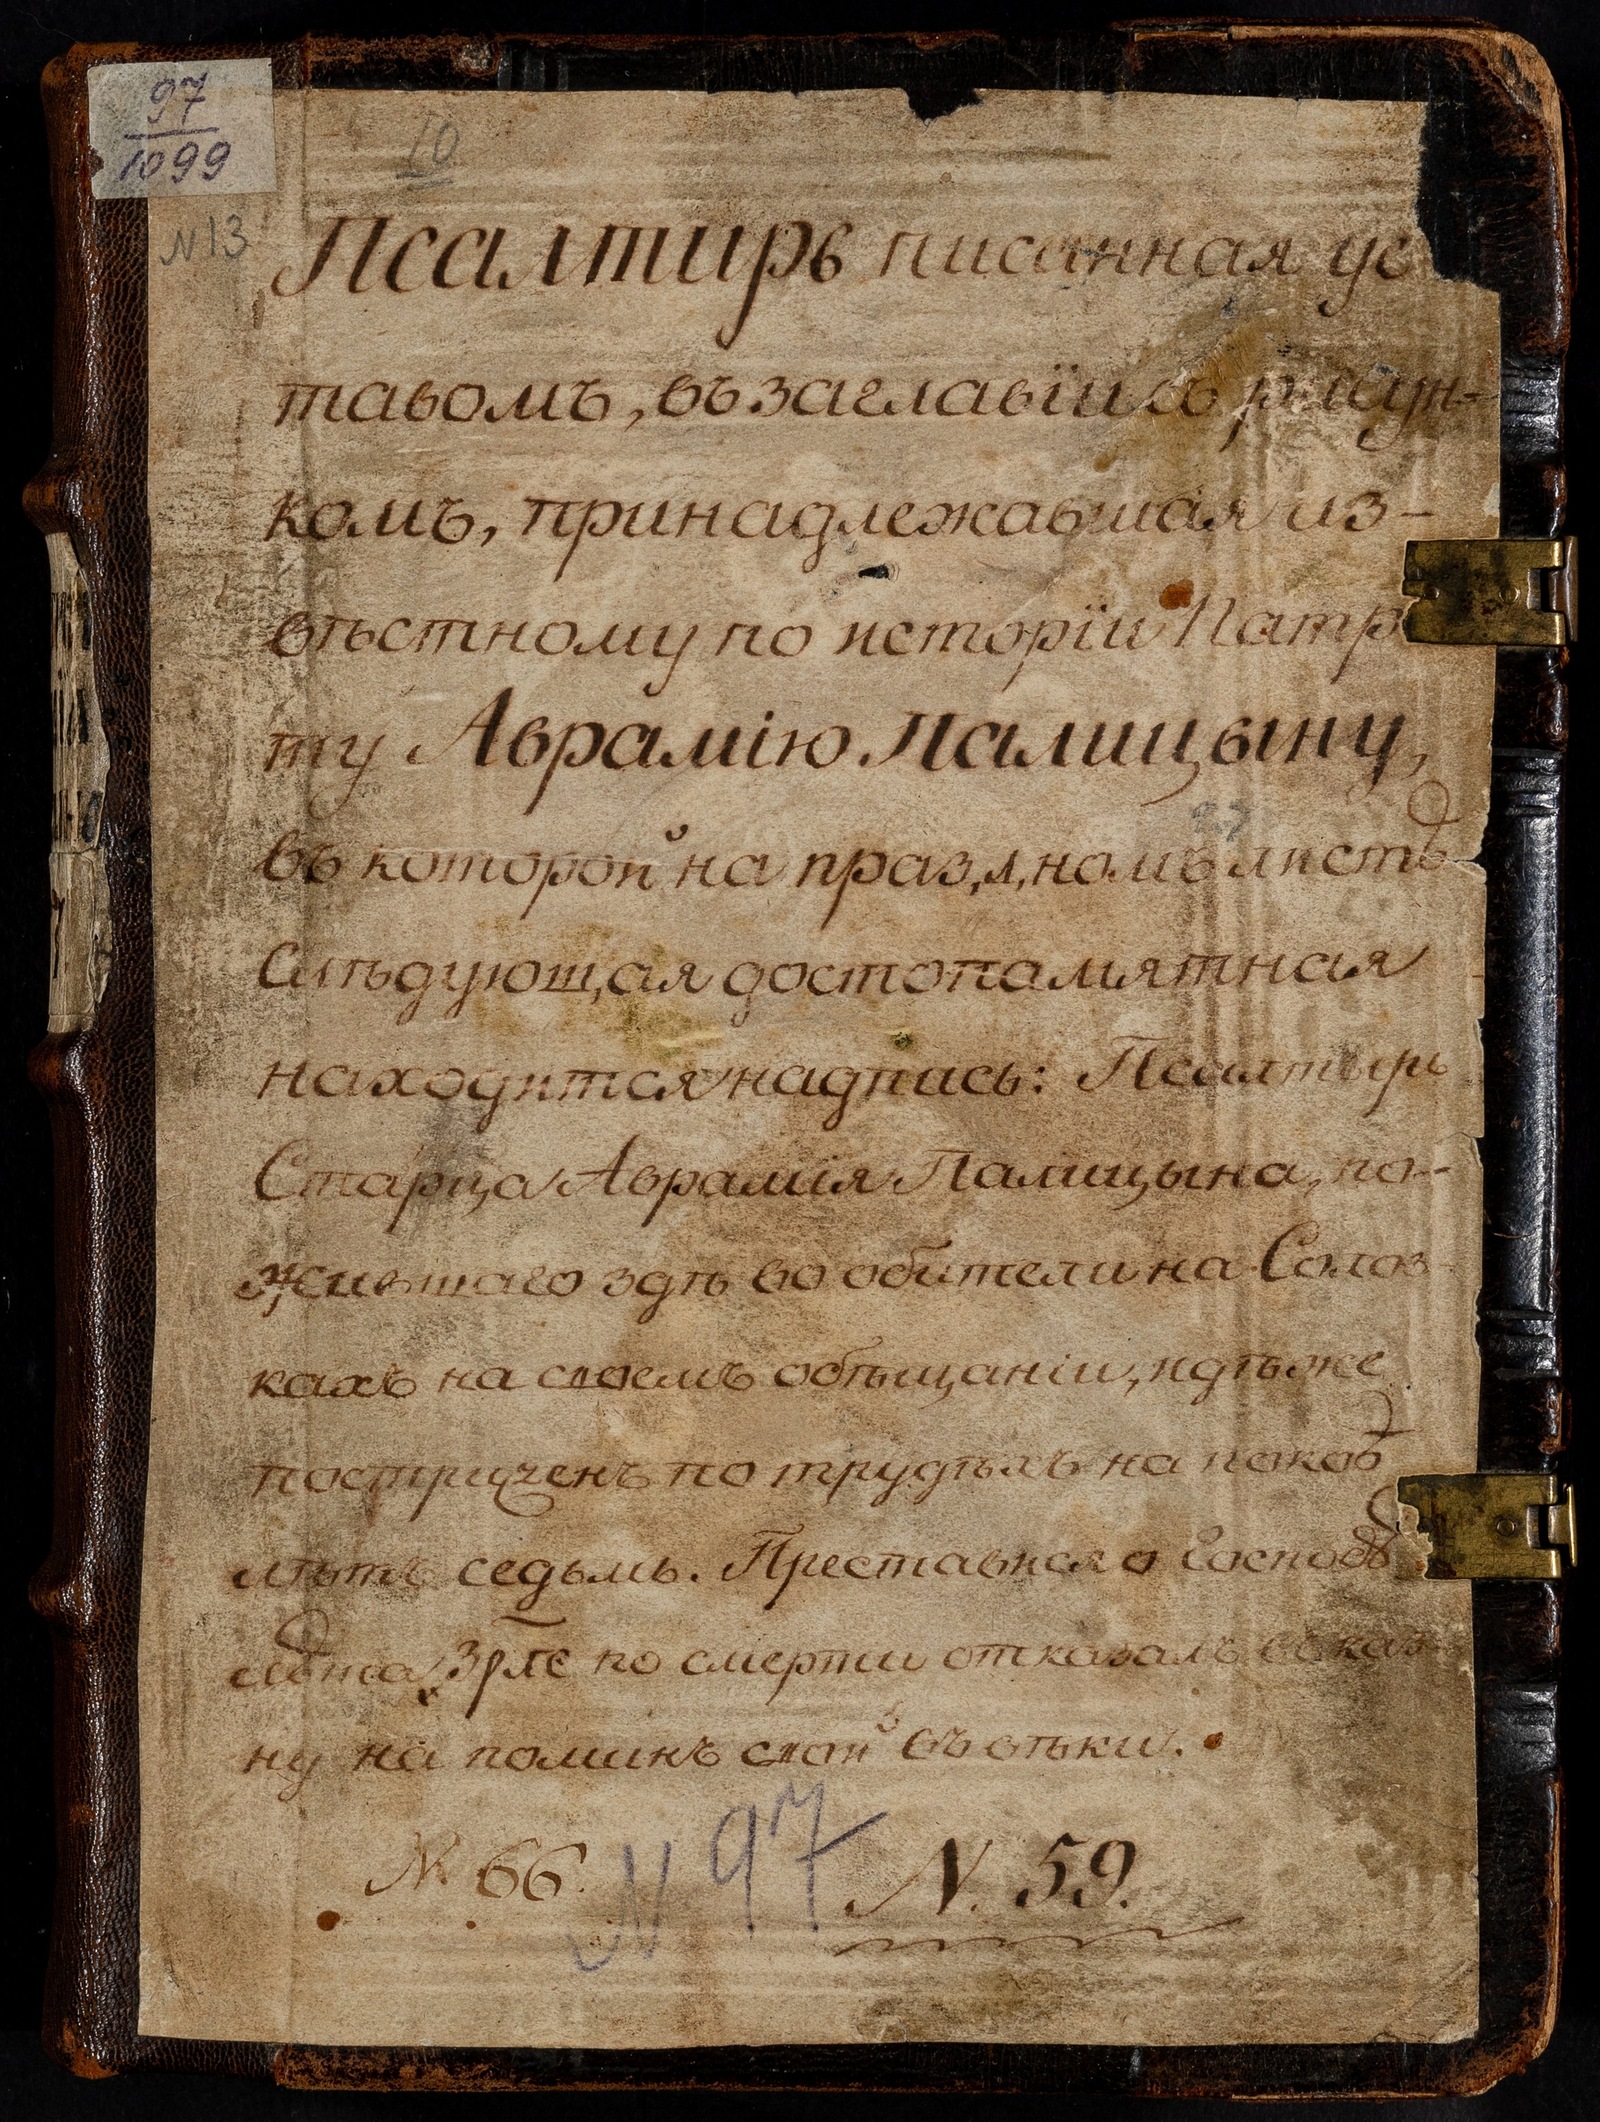 97
1099
10
N 13
Псалтирь писанная ус
тавомъ, въ заглавїи съ рисун-
комъ, принадлежавшая из-
вѣстному по исторїи Патр
ту Аврамію Палицыну,
въ которой на праз,д,номъ листѣ
Слѣдующая достопамятная
находится надпись: Псалтырь
Старца Аврамія Палицына, по-
жившаго здѣ во обители на Солов-
кахъ на своемъ обѣщаніи, идѣже
постриженъ по трудѣхъ на покоѣ
лѣтъ седьмь. Преставися о Господѣ
лѣта ҂зрле по смерти отказалъ въ каз-
ну на поминъ свой въ вѣки.
№ 66.
N 97
N. 59.